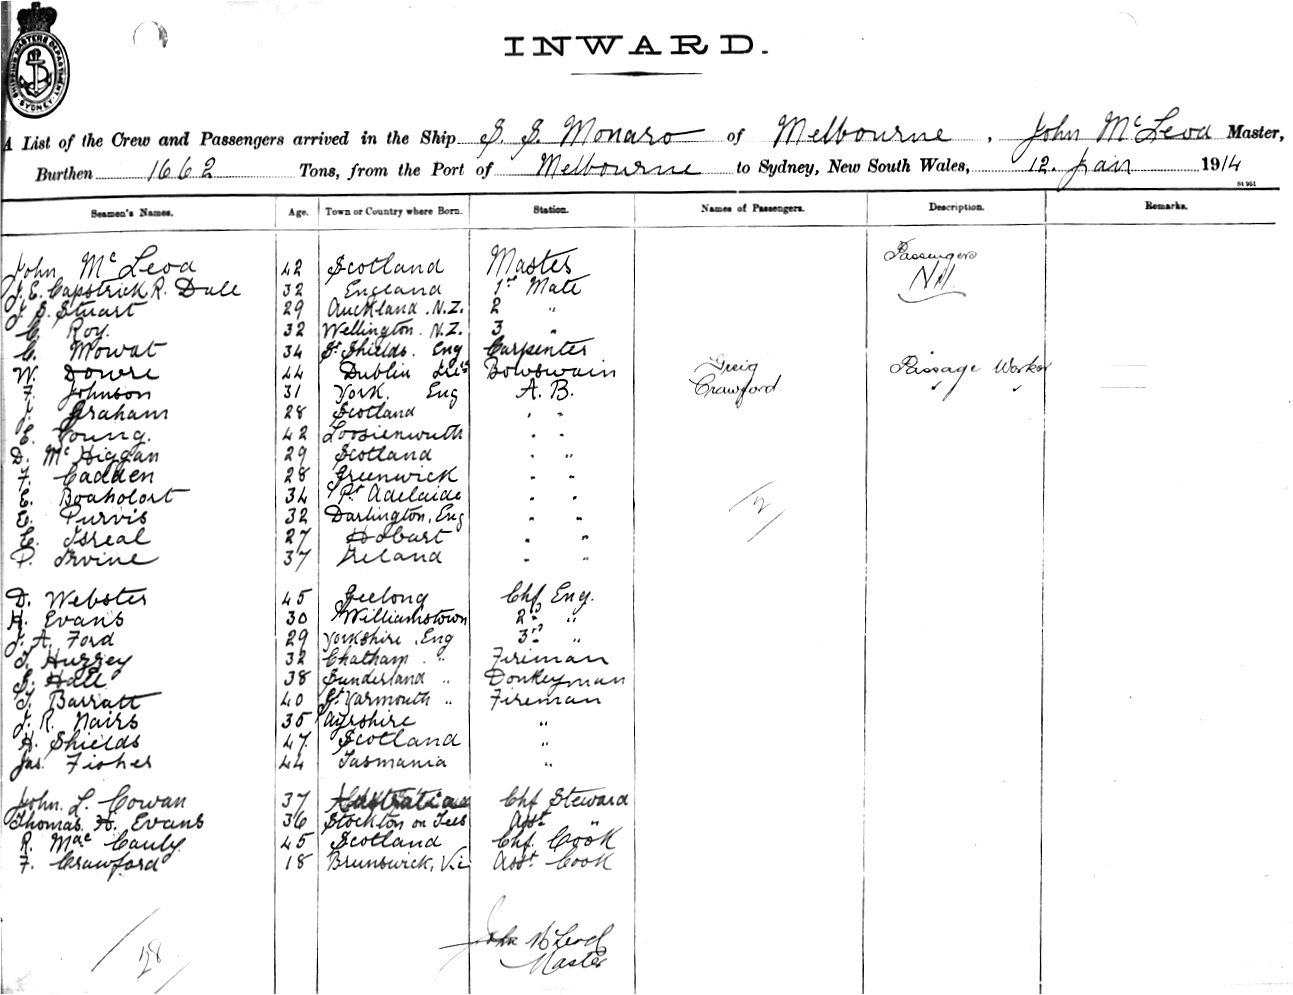 SHIPPING MASTERS DEPARTMENT SYDNEY
INWARD.
A List of the Crew and Passengers arrived in the Ship S. S. Monaro of Melbourne, John McLeod Master,
Burthen 1662 Tons, from the Port of Melbourne to Sydney, New South Wales, 12. Jan 1914
St 951
Seamen's Names. Age. Town or Country where Born. Station. Names of Passengers. Description. Remarks.
Passengers
John McLeod 42 Scotland Master Nil.
J. E. Capstick R. Dale 32 England 1st Mate
J. S. Stuart 29 Auckland. N.Z. 2 "
C. Roy. 32 Wellington. N.Z. 3 "
C. Mowat 34 St Shields. Eng Carpenter
W. Dowre 44 Dublin Bowswain Greig Passage Worker
F. Johnson 31 York. Eng A. B. Crawford " "
J. Graham 28 Scotland " "
C. Young. 42 " "
D. McHiggan 29 Scotland " "
F. Cadden 28 Greenwick " "
E. Boaholort 34 Pt Adelaide " "
E. Purvis 32 Darlington, Eng " "
C. Isreal 27 Hobart " "
P. Irvine 37 Ireland " "
2
D. Webster 45 Geelong Chf Eng.
H. Evans 30 Williamstown 2nd "
J. A. Ford 29 Yorkshire. Eng 3rd "
J. Huzzey 32 Chatham. " Fireman
G. Hall 38 Sunderland " Donkeyman
T. Barratt 40 Gt Yarmouth " Fireman
J. R. Nairs 35 Ayrshire "
H. Shields 47 Scotland "
Jas. Fisher 44 Tasmania "
John. L. Cowan 37 Chf Steward
Thomas H. Evans 36 Stockton on Tees Asst "
R. MacCauly 45 Scotland Chf. Cook
F. Crawford 18 Brunswick, Vic Asst Cook
John McLeod
Master
28